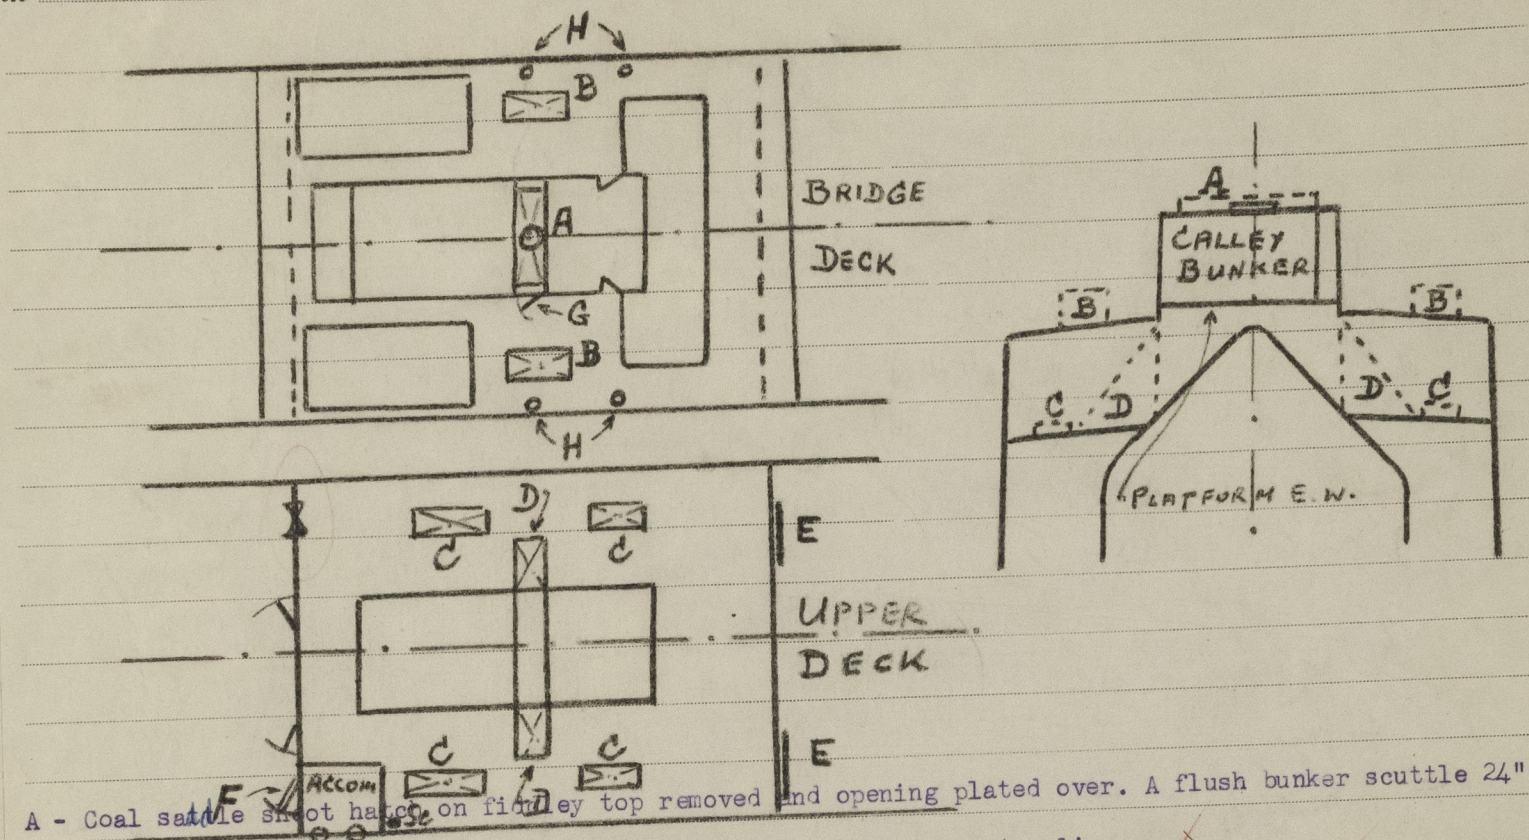 H
B
A
G
B
H
BRIDGE
DECK
A
CALLEY
BUNKER
B
B
C
D
D
C
PLATFORM E.W.
D
C
C
E
UPPER
DECK
C
C
E
F
ACCOM
D
A - Coal saddle shoot hatch on fiddley top removed and opening plated over. A flush bunker scuttle 24"